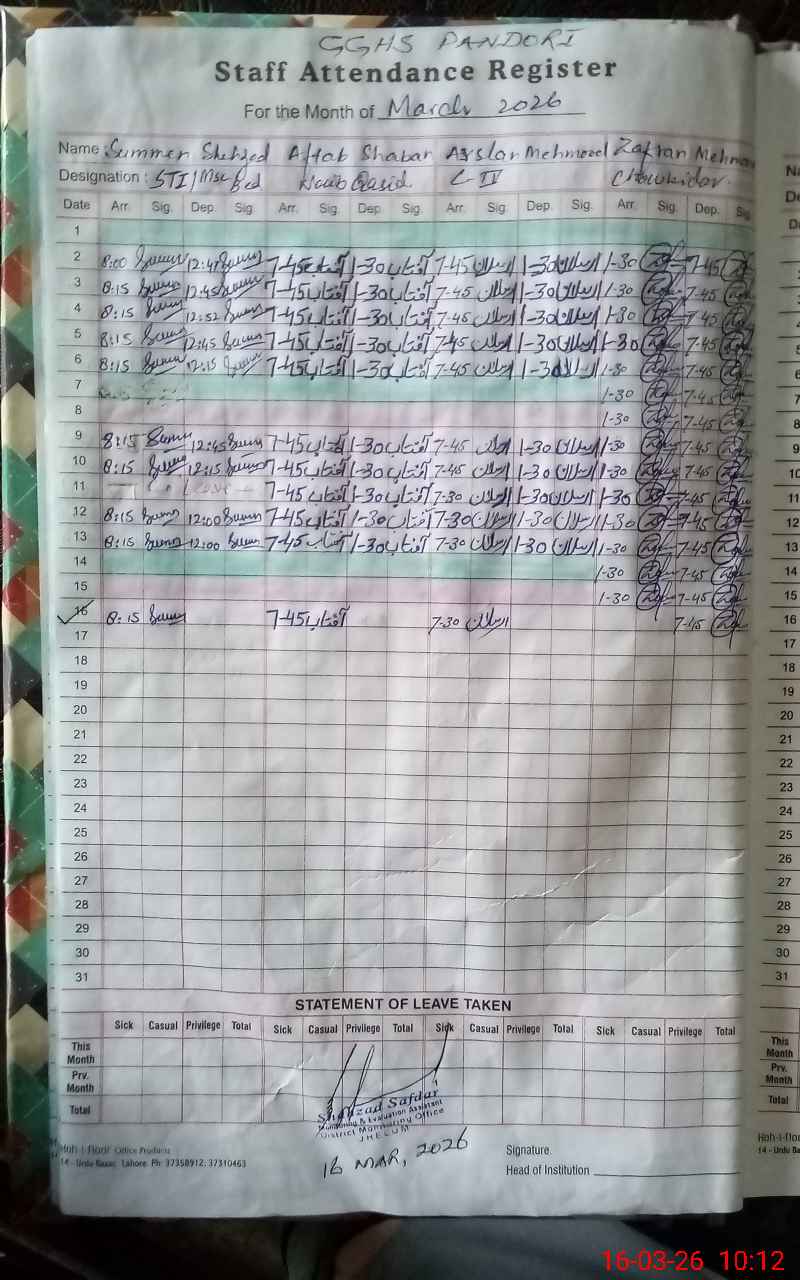 GGHS PANDORI
Staff Attendance Register
For the Month of March 2026
Name: Summer Shehzad Aftab Shabar Arslan Mehmood Zafran Mehmo
Designation: STI/Msc Bed Naib Qasid C-IV Chowkidar
Date Arr. Sig. Dep. Sig. Arr. Sig. Dep. Sig. Arr. Sig. Dep. Sig. Arr. Sig. Dep. Sig.
1
2 8:00 12:47 7-45 آفتاب 1-30 آفتاب 7-45 ارسلان 1-30 ارسلان 1-30 7-45
3 8:15 12:45 7-45 آفتاب 1-30 آفتاب 7-45 ارسلان 1-30 ارسلان 1-30 7-45
4 8:15 12:52 7-45 آفتاب 1-30 آفتاب 7-45 ارسلان 1-30 ارسلان 1-30 7-45
5 8:15 12:45 7-45 آفتاب 1-30 آفتاب 7-45 ارسلان 1-30 ارسلان 1-30 7-45
6 8:15 12:15 7-45 آفتاب 1-30 آفتاب 7-45 ارسلان 1-30 ارسلان 1-30 7-45
7 1-30 7-45
8 1-30 7-45
9 8:15 12:45 7-45 آفتاب 1-30 آفتاب 7-45 ارسلان 1-30 ارسلان 1-30 7-45
10 8:15 12:15 7-45 آفتاب 1-30 آفتاب 7-45 ارسلان 1-30 ارسلان 1-30 7-45
11 7-45 آفتاب 1-30 آفتاب 7-30 ارسلان 1-30 ارسلان 1-30 7-45
12 8:15 12:00 7-45 آفتاب 1-30 آفتاب 7-30 ارسلان 1-30 ارسلان 1-30 7-45
13 8:15 12:00 7-45 آفتاب 1-30 آفتاب 7-30 ارسلان 1-30 ارسلان 1-30 7-45
14 1-30 7-45
15 1-30 7-45
16 8:15 7-45 آفتاب 7-30 ارسلان 7-45
17
18
19
20
21
22
23
24
25
26
27
28
29
30
31
STATEMENT OF LEAVE TAKEN
Sick Casual Privilege Total Sick Casual Privilege Total Sick Casual Privilege Total Sick Casual Privilege Total
This Month
Prv. Month
Total
Shahzad Safdar
Monitoring & Evaluation Assistant
District Monitoring Office
JHELUM
16 MAR, 2026
Hoh-i-Noor Office Products
14 - Urdu Bazar, Lahore. Ph: 37358912, 37310463
Signature
Head of Institution
16-03-26 10:12